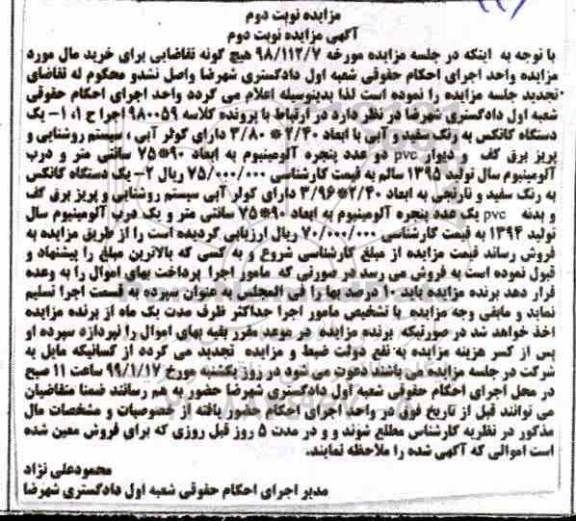 مزایده نوبت دوم
آگهی مزایده نوبت دوم
با توجه به اینکه در جلسه مزایده مورخه ۹۸/۱۱۲/۷ هیچ گونه تقاضایی برای خرید مال مورد
مزایده واحد اجرای احکام حقوقی شعبه اول دادگستری شهرضا واصل نشدو محکوم له تقاضای
تجدید جلسه مزایده را نموده است لذا بدینوسیله اعلام می گردد واحد اجرای احکام حقوقی
شعبه اول دادگستری شهرضا در نظر دارد در ارتباط با پرونده کلاسه ۹۸۰۰۵۹ اجرا ح ۱، ۱- یک
دستگاه کانکس به رنگ سفید و آبی با ابعاد ۲/۴۰ * ۳/۸۰ دارای کولر آبی ، سیستم روشنایی و
پریز برق کف و دیوار pvc دو عدد پنجره آلومینیوم به ابعاد ۹۰*۷۵ سانتی متر و درب
آلومینیوم سال تولید ۱۳۹۵ سالم به قیمت کارشناسی ۷۵/۰۰۰/۰۰۰ ریال ۲- یک دستگاه کانکس
به رنگ سفید و نارنجی به ابعاد ۲/۴۰*۳/۹۶ دارای کولر آبی سیستم روشنایی و پریز برق کف
و بدنه pvc یک عدد پنجره آلومینیوم به ابعاد ۹۰*۷۵ سانتی متر و یک درب آلومینیوم سال
تولید ۱۳۹۴ به قیمت کارشناسی ۷۰/۰۰۰/۰۰۰ ریال ارزیابی گردیده است را از طریق مزایده به
فروش رساند قیمت مزایده از مبلغ کارشناسی شروع و به کسی که بالاترین مبلغ را پیشنهاد و
قبول نموده است به فروش می رسد در صورتی که مامور اجرا پرداخت بهای اموال را به وعده
قرار دهد برنده مزایده باید ۱۰ درصد بها را فی المجلس به عنوان سپرده به قسمت اجرا تسلیم
نماید و مابقی وجه مزایده با تشخیص مامور اجرا حداکثر ظرف مدت یک ماه از برنده مزایده
اخذ خواهد شد در صورتیکه برنده مزایده در موعد مقرر بقیه بهای اموال را نپردازد سپرده او
پس از کسر هزینه مزایده به نفع دولت ضبط و مزایده تجدید می گردد از کسانیکه مایل به
شرکت در جلسه مزایده می باشند دعوت می شود در روز یکشنبه مورخ ۹۹/۱/۱۷ ساعت ۱۱ صبح
در محل اجرای احکام حقوقی شعبه اول دادگستری شهرضا حضور بهم رسانند ضمنا متقاضیان
می توانند قبل از تاریخ فوق در واحد اجرای احکام حضور یافته از خصوصیات و مشخصات مال
مذکور در نظریه کارشناس مطلع شوند و و در مدت ۵ روز قبل روزی که برای فروش معین شده
است اموالی که آگهی شده را ملاحظه نمایند.
محمودعلی نژاد
مدیر اجرای احکام حقوقی شعبه اول دادگستری شهرضا